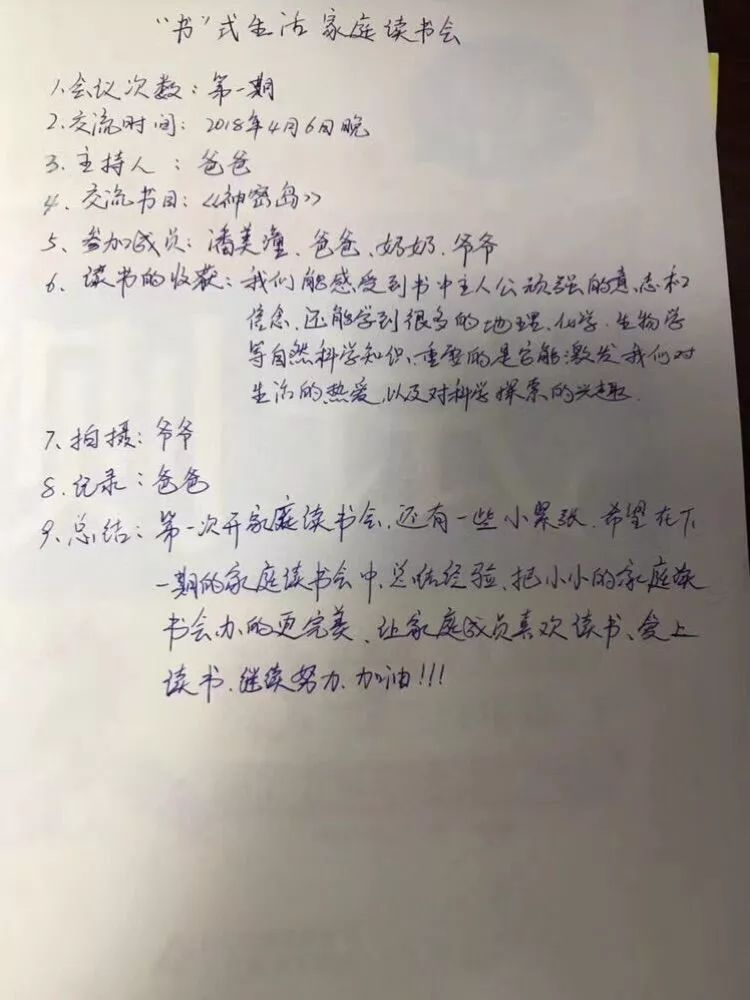 “书”式生活家庭读书会
1.会议次数：第一期
2.交流时间：2018年4月6日晚
3.主持人：爸爸
4、交流书目：《神密岛》
5、参加成员：潘美潼、爸爸、奶奶、爷爷
6、读书的收获：我们能感受到书中主人公顽强的意志和
信念、还能学到很多的地理、化学、生物学
等自然科学知识、重要的是它能激发我们对
生活的热爱、以及对科学探索的兴趣.
7、拍摄：爷爷
8.记录：爸爸
9、总结：第一次开家庭读书会、还有一些小紧张、希望在下
一期的家庭读书会中、总结经验、把小小的家庭读
书会办的更完美、让家庭成员喜欢读书、爱上
读书、继续努力、加油!!!